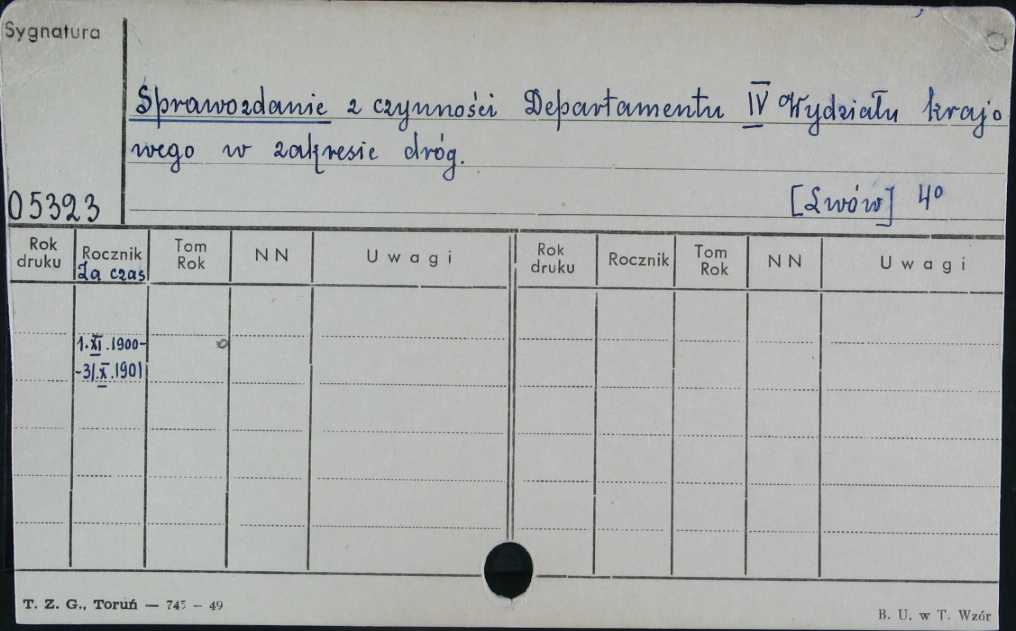 Sygnatura
Sprawozdanie z czynności Departamentu IV Wydziału krajo
wego w zakresie dróg.
05323
[Lwów] 4º
Rok druku Rocznik Tom Rok NN Uwagi Rok druku Rocznik Tom Rok NN Uwagi
Za czas
1.XI.1900-
-31.X.1901
T. Z. G., Toruń — 745 – 49
B. U. w T. Wzór